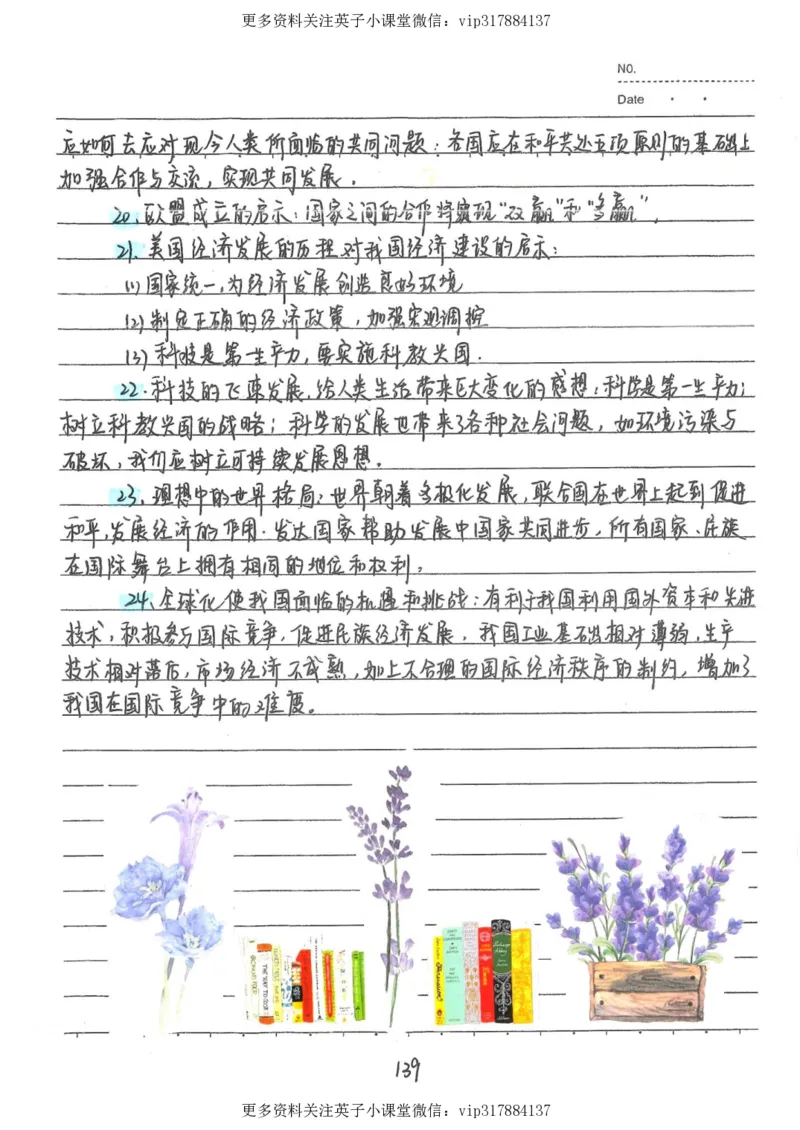 更多资料关注英子小课堂微信：vip317884137
NO.
Date
应如何去应对现今人类所面临的共同问题：各国应在和平共处五项原则的基础上
加强合作与交流，实现共同发展．
20、欧盟成立的启示：国家之间的合作将实现“双赢”和“多赢”．
21．美国经济发展的历程对我国经济建设的启示：
(1)国家统一，为经济发展创造良好环境
(2)制定正确的经济政策，加强宏观调控
(3)科技是第一生产力，要实施科教兴国．
22．科技的飞速发展，给人类生活带来巨大变化的感想：科学是第一生产力；
树立科教兴国的战略；科学的发展也带来了各种社会问题，如环境污染与
破坏，我们应树立可持续发展思想．
23、理想中的世界格局：世界朝着多极化发展，联合国在世界上起到促进
和平，发展经济的作用．发达国家帮助发展中国家共同进步，所有国家、民族
在国际舞台上拥有相同的地位和权利。
24、全球化使我国面临的机遇和挑战：有利于我国利用国外资本和先进
技术，积极参与国际竞争，促进民族经济发展．我国工业基础相对薄弱，生产
技术相对落后，市场经济不成熟，加上不合理的国际经济秩序的制约，增加了
我国在国际竞争中的难度。
139
更多资料关注英子小课堂微信：vip317884137